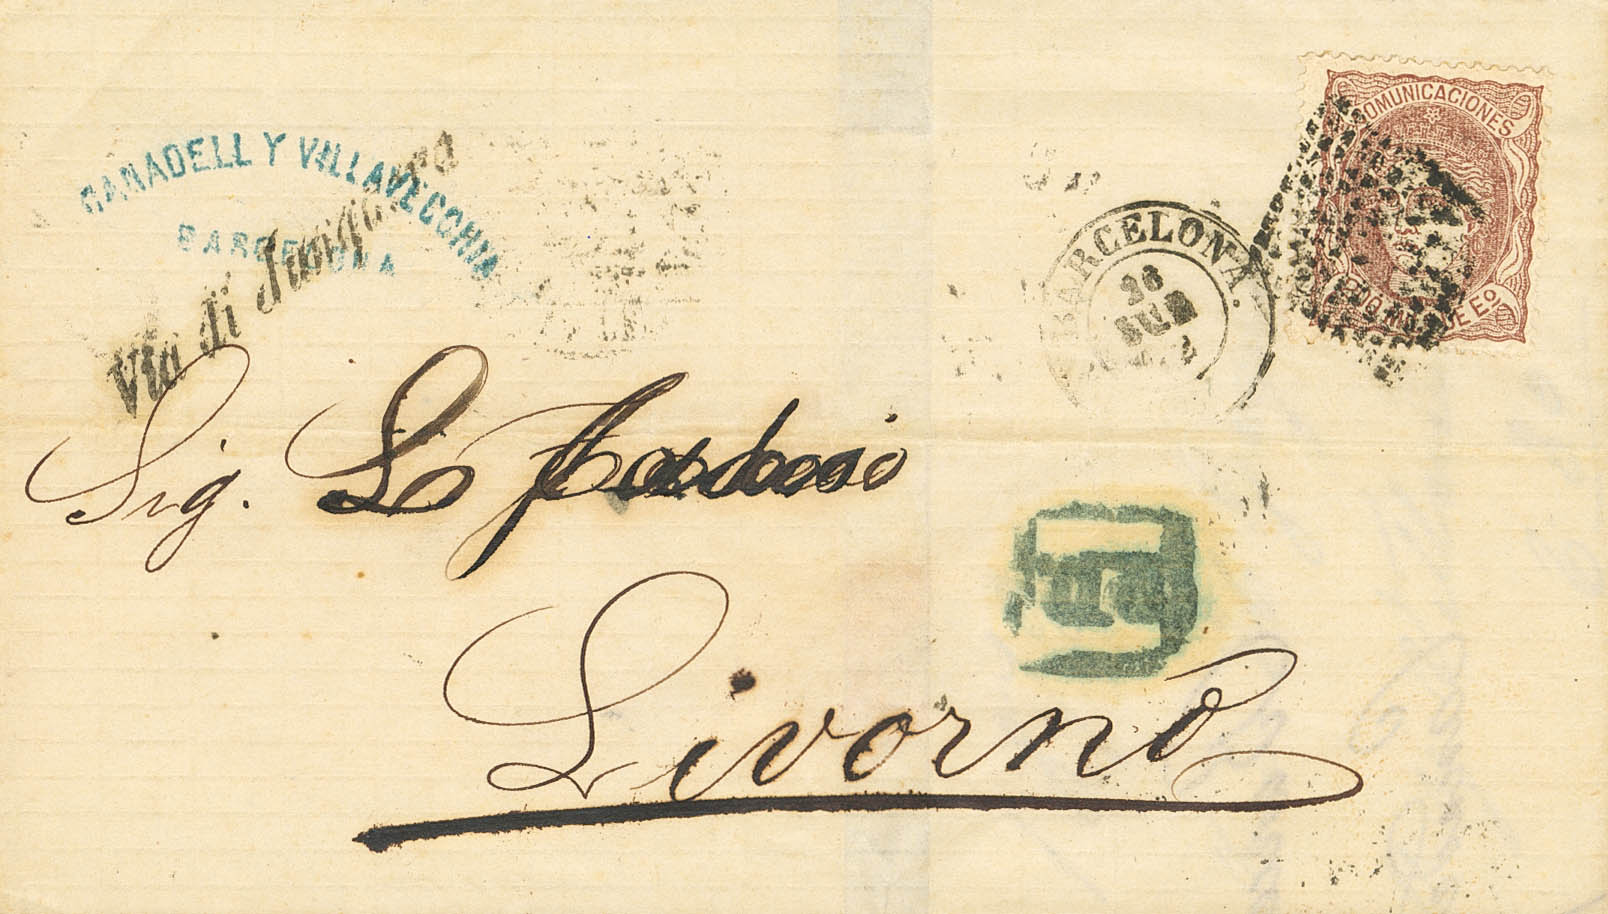 CANADELL Y VILLAVECCHIA
BARCELONA
Via di Junquera
COMUNICACIONES
DE Eo
BARCELONA.
26
JUN
Sig. L.
P.D.
Livorno